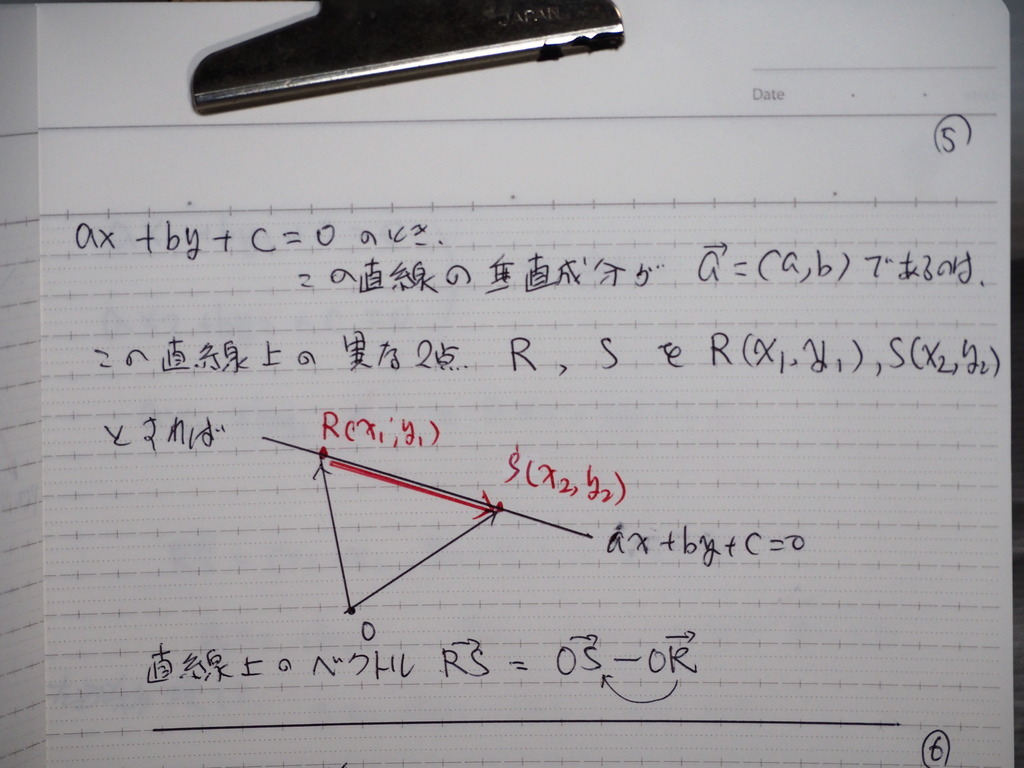 JAPAN
Date
⑤
ax + by + c = 0 のとき.
この直線の垂直成分が \vec{a} = (a, b) であるのは.
この直線上の異なる2点 R, S を R(x₁, y₁), S(x₂, y₂)
とすれば
R(x₁, y₁)
S(x₂, y₂)
ax + by + c = 0
O
直線上のベクトル \vec{RS} = \vec{OS} - \vec{OR}
⑥